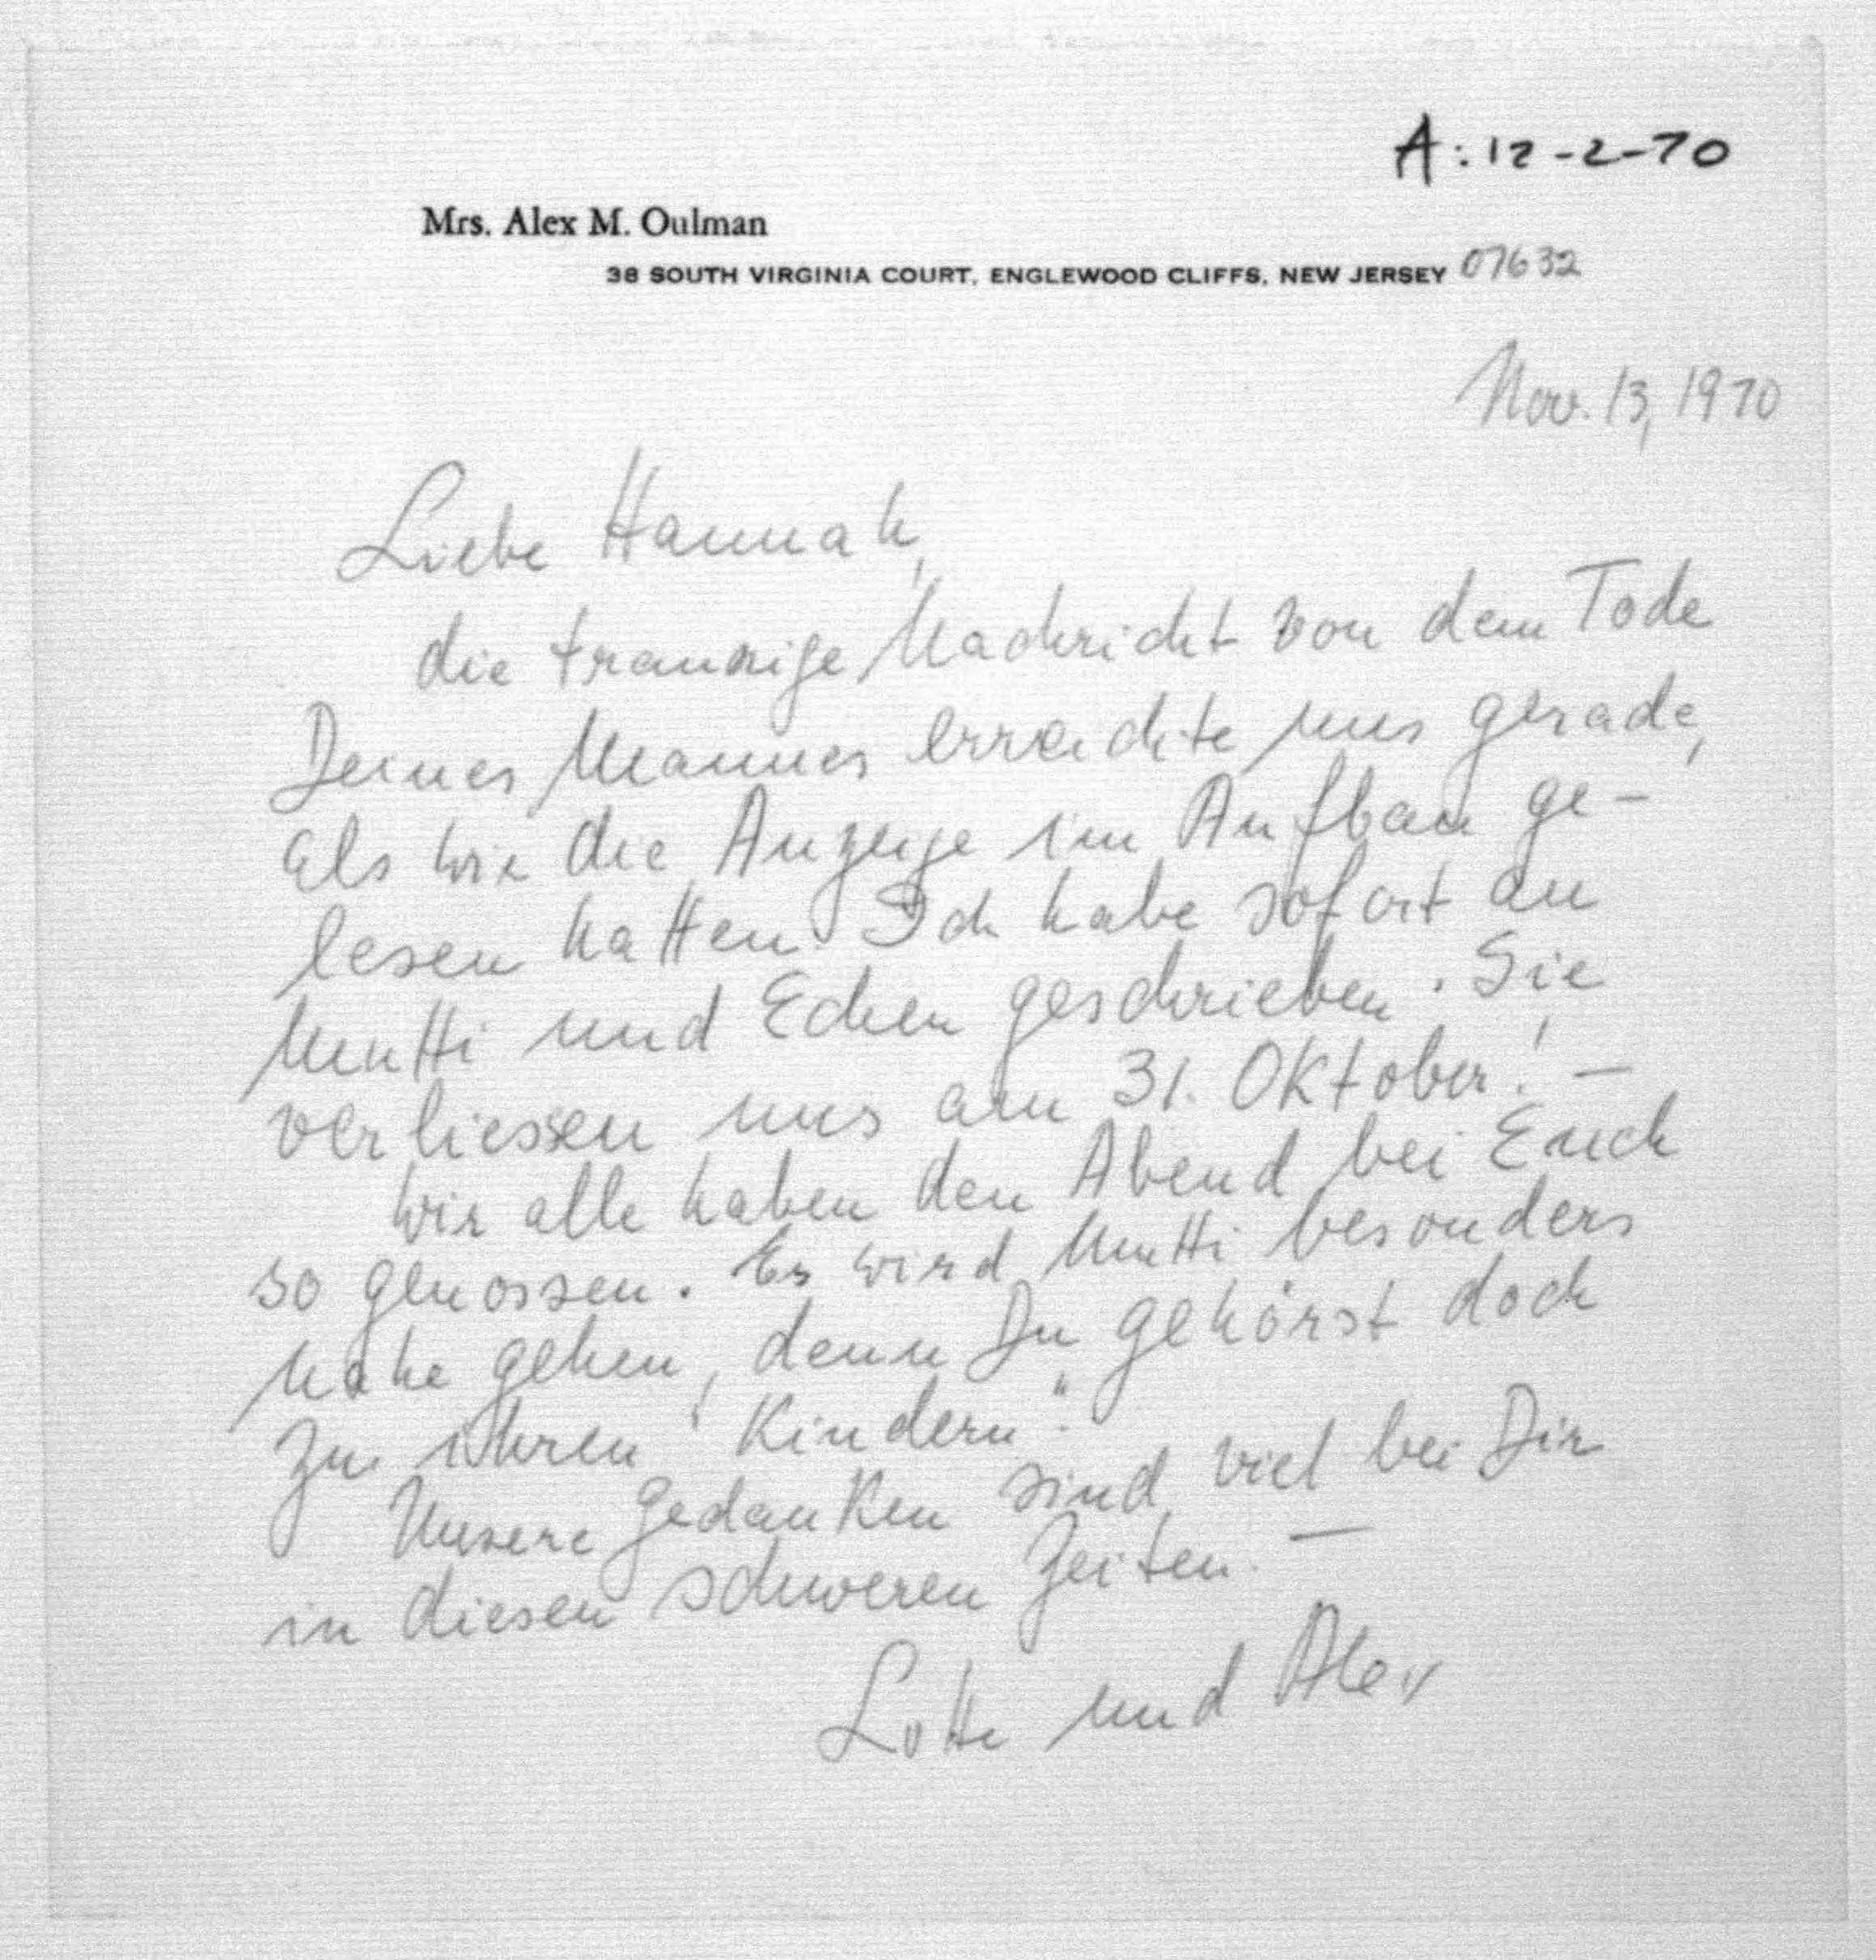 A: 12-2-70
Mrs. Alex M. Oulman
38 SOUTH VIRGINIA COURT, ENGLEWOOD CLIFFS, NEW JERSEY 07632
Nov. 13, 1970
Liebe Hannah,
die traurige Nachricht von dem Tode
Deines Mannes erreichte uns gerade,
als wir die Anzeige im Aufbau ge-
lesen hatten. Ich habe sofort an
Mutti und Edchen geschrieben. Sie
verliessen uns am 31. Oktober! —
Wir alle haben den Abend bei Euch
so genossen. Es wird Mutti besonders
nahe gehen, denn Du gehörst doch
zu ihren "Kindern".
Unsere Gedanken sind viel bei Dir
in diesen schweren Zeiten. —
Lotte und Alex